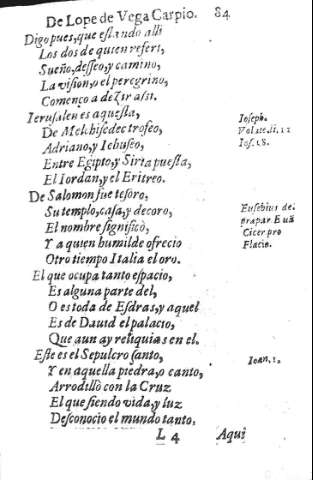 De Lope de Vega Carpio. 84
Digo pues, que estando alli
Los dos de quien referi,
Sueño, desseo, y camino,
La vision, o el peregrino,
Començo a dezir assi.
Ierusalen es aquesta,
De Melchisedec trofeo,
Adriano, y Iebuseo,
Entre Egipto, y Siria puesta,
El Iordan, y el Eritreo.
De Salomon fue tesoro,
Su templo, casa, y decoro,
El nombre significò,
Y a quien humilde ofrecio
Otro tiempo Italia el oro.
El que ocupa tanto espacio,
Es alguna parte del,
O es toda de Esdras, y aquel
Es de Dauid el palacio,
Que aun ay reliquias en el.
Este es el Sepulcro santo,
Y en aquella piedra, o canto,
Arrodillò con la Cruz
El que siendo vida, y luz
Desconocio el mundo tanto,
L 4 Aqui
Ioseph.
Volate. li. 11
Ios. 18.
Eusebius de
prapar. Euã
Cicer pro
Flacio.
Ioan. 1.